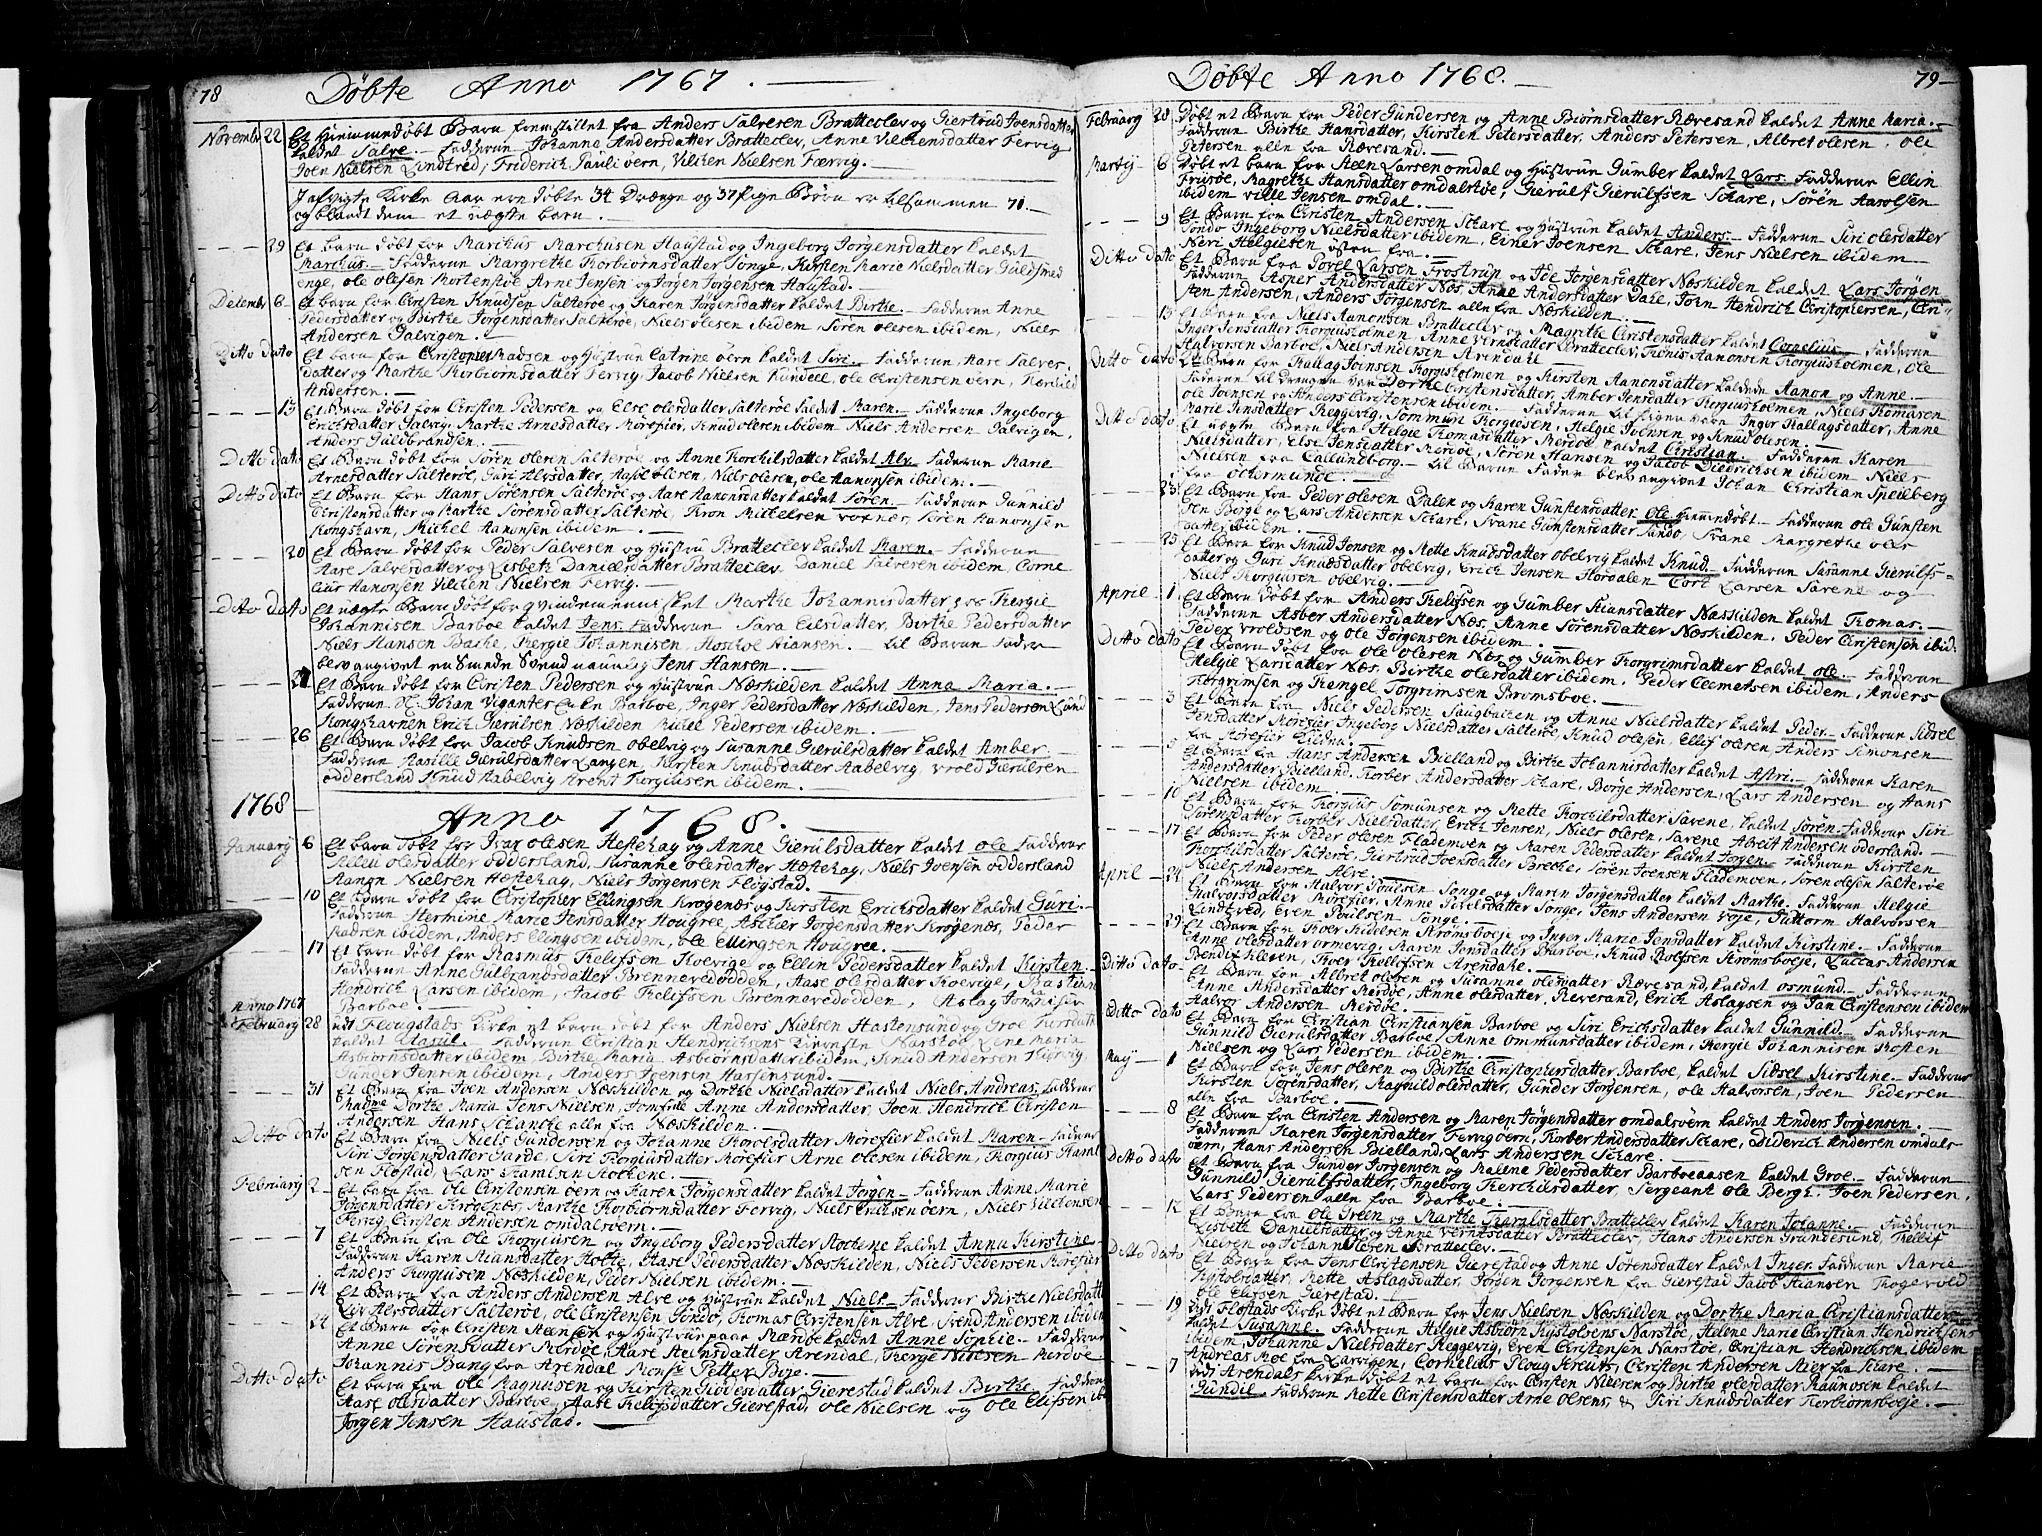 78
Döbte Anno 1767.
November 22 Et Hiemmedöbt Barn fremstillet fra Anders Salvesen Bratteclev og Giertrud Joensdatter
kaldet Salve. Fadderne Johanne Andersdatter Bratteclev, Anne Vilchensdatter Fervig
Joen Nielsen Lindtved, Friderich Pauli vern, Vilchen Nielsen Færvig.
Jafvigte Kirke Aar ere döbte 34 Drænge og 37 Pige Börn er tilsammen 71.
og blandt dem et uægte barn.
29 Et barn döbt for Marchus Marchusen Haustad og Ingeborg Jörgensdatter kaldet
Marchus. Fadderne Margrethe Torbiörnsdatter Songe, Kirsten Marie Nielsdatter Guldsmed
enge, ole olesen Mortensboe Arne Jensen og Jörgen Jörgensen Haustad.
Decembr 6 Et barn for Christen Knudsen Salteröe og Karen Jörgensdatter kaldet Birthe. Fadderne Anne
Pedersdatter og Birthe Jörgensdatter Salteröe, Niels olesen ibidem, Sören olesen ibidem, Niels
Andersen Galvigen.
Ditto dato Et barn fra Christopher Madsen og Hustrue Catrine öern kaldet Siri. Fadderne Aase Salves
datter og Marthe Torbiörnsdatter Fervig, Jacob Nielsen, ole Christensen vern,
Andersen.
13 Et Barn döbt for Christen Pedersen og Else olesdatter Salteröe kaldet Maren. Fadderne Ingeborg
Erichsdatter Galvig, Marthe Arnesdatter Morefier, Knud olesen ibidem Niels Andersen Galvigen,
Anders Guldbrandsen.
Ditto dato Et Barn döbt for Sören olesen Salteröe og Anne Torchilsdatter kaldet Alv. Fadderne Marie
Arnesdatter Salteröe, Guri Alvsdatter, Aase olesen, Niels olesen, ole Aanonsen ibidem.
Ditto dato Et Barn for Hans Sörensen Salteröe og Aase Aanonsdatter kaldet Sören. Fadderne Gunnild
Christensdatter og Marthe Sörensdatter Salteröe, Tron Michelsen vornæs, Sören Aanonsen
Kongshavn, Michel Aanonsen ibidem.
20 Et Barn döbt for Peder Salvesen og Hustrue Bratteclev kaldet Maren. Fadderne
Aase Salvesdatter og Lisbeth Danielsdatter Bratteclev Daniel Salvesen ibidem, Corne
lius Aanonsen Vilchen Nielsen Fervig.
Ditto dato Et uægte Barn döbt for qvindemennisket Marthe Johannisdatter Tergie
Johannisen Barboe kaldet Jens. Fadderne Sara Eilsdatter, Birthe Pedersdatter
Niels Hansen Tergie Johannisen, Til Barne Fader
blev angivet en Svend navnlig Jens Hansen.
21 Et Barn döbt for Christen Pedersen og Hustrue Næskilden kaldet Anna Maria.
Fadderne Barboe, Inger Pedersdatter Næskilden, Jens Pedersen
Kongshavnen Erich Gierulsen Næskilden Pedersen ibidem.
26 Et Barn döbt for Jacob Knudsen obelvig og Susanne Gierulsdatter kaldet Amber
Fadderne Gierulsdatter Langen, Kirsten Knudsdatter Aabelvig, Vrold Gierulsen
odderland Knud Aabelvig Arent Torgiusen ibidem.
1768
Anno 1768.
January 6 Et barn döbt for Ivar olesen Hestehag og Anne Gierulsdatter kaldet ole Fadderne
olesdatter odderland, Susanne olesdatter Hestehag, Niels Jvensen odderland
Aanon Nielsen Hestehag, Niels Jörgensen Flögstad.
10 Et Barn döbt for Christopher Ellingsen Krogenæs og Kirsten Erichsdatter kaldet Guri.
Fadderne Hermine Marie Jensdatter Jörgensdatter Krogenæs, Peder
Madsen ibidem, Anders Ellingsen ibidem, ole Ellingsen
17 Et barn döbt for Rasmus Tellefsen Torvige og Ellin Pedersdatter kaldet Kirsten
Fadderne Anne Gulbrandsdatter Brennevedodden, Aase olesdatter Torvige, Bastian
Hendrich Larsen ibidem, Jacob Tellefsen Brennevedodden, Aslag Tonnisen
Barboe.
Anno 1767
February 28 udi Flougstads Kirke et barn döbt for Anders Nielsen Hastensund og Groe
kaldet Fadderne Christian Hendrichsens Kierreste Narstöe Lene Maria
Asbiörnsdatter ibidem, Birthe Maria Asbiörnsdatter ibidem, Knud Andersen
Gunder Jensen ibidem, Anders Joensen Hassensund.
31 Et Barn fra Joen Andersen Næskilden og Dorthe Nielsdatter kaldet Niels Andreas, Fadderne
Madme Dorthe Maria Jens Nielsen, Jomfrue Anne Andersdatter, Joen Hendrich Christen
Andersen Hans Schanche alle fra Næskilden.
Ditto dato Et Barn fra Niels Gundersen og Johanne Torvelsdatter Morefier kaldet Maren. Fadderne
Siri Jörgensdatter Garde, Siri Torgiusdatter Morefier Arne olesen ibidem, Torgius
sen Flostad, Lars
February 2 Et barn fra ole Christensen vern og Karen Jörgensdatter kaldet Jörgen. Fadderne Anne Marie
Jörgensdatter Krogenæs, Marthe Torbiörnsdatter Fervig, Niels vern, Niels Vilchensen
Fervig Christen Andersen omdalsvern.
7 Et Barn fra ole Torgiusen og Ingeborg Pedersdatter kaldet Anna Kirstine
Fadderne Karen Stiansdatter Aase Pedersdatter Næskilden, Niels Pedersen Morefier
Anders Torgiusen Næskilden, Peder Nielsen ibidem.
14 Et Barn fra Anders Andersen Alve og Hustrue kaldet Niels. Fadderne Birthe Nielsdatter
Siri Alvsdatter Salteröe, ole Christensen Tondo, Thomas Christensen Alve, Svend Andersen ibidem
22 Et Barn for Christen Steensen og Hustrue paa Mærdöe kaldet Anne Sophie. Fadderne
Anne Sörensdatter Merdöe, Aase Arendal, Terge Nielsen Merdöe
Johannis Bang fra Arendal Monsr Petter Boje.
Ditto dato Et barn fra ole Magnusen og Kirsten datter Gierestad kaldet Birthe. Fadderne
Aase olesdatter Barboe, Aase Tellefsdatter Gierestad, ole Nielsen og ole Ellefsen ib
Jörgen Jensen Haustad.
Döbte Anno 1768.
79
Februarij 28 Döbt et Barn for Peder Gundersen og Anne Biörnsdatter Rævesand kaldet Anne Maria.
Fadderne Birthe Hansdatter, Kirsten Petersdatter, Anders Petersen, Albret olesen, ole
Petersen alle fra Rævesand.
Martij 6 Döbt et barn for Steen Larsen omdal og Hustrue Gumber kaldet Lars. Fadderne Ellin
Fruisöe, Magrethe Hansdatter omdalsröe, Gieruls Gierulfsen Schare, Sören Aarolsen
ibidem ville Jensen omdal.
9 Et Barn for Christen Andersen Schare og Hustrue kaldet Anders. Fadderne Siri olesdatter
Tondo Ingeborg Nielsdatter ibidem, Einer Joensen Schare, Jens Nielsen ibidem
Neri Helgiesen östen fra.
Ditto dato Et Barn fra Povel Larsen Frostrup og Ide Jörgensdatter Næskilden kaldet Lars Jörgen
Fadderne Asper Andersdatter Næs Anne Andersdatter Dale, John Hendrich Christophersen, Chri
sten Andersen, Anders Jörgensen alle fra Næskilden.
13 Et Barn fra Niels Aanonsen Bratteclev og Magrethe Christensdatter kaldet Cornelius. Fadderne
Inger Jensdatter Torgiusholmen, Anne Verensdatter Bratteclev, Tönnis Aanonsen Torgiusholmen, ole
Halvorsen Barboe, Niels Andersen Arendahl
Ditto dato 2de Börn for Tallag Joensen Torgisholmen og Kirsten Aanonsdatter kaldede Aanon og Anne
Faddere til drengen var Dorthe Christensdatter, Amber Jensdatter Torgiusholmen, Niels Thomasen
ole Joensen og Anders Christensen ibidem. Faddere til pigen vare Inger Tallagsdatter, Anne
Marie Jensdatter Reggevig, Sommund Torgiesen, Helgie Joensen og Knud olesen.
Ditto dato Et uægte Barn fra Helgie Thomasdatter Merdöe kaldet Christian. Fadderne Karen
Nielsdatter, Else Jensdatter Merdöe, Sören Hansen og Jacob Diedrichsen ibidem Niels
Nielsen fra Callundborg. Til Barne Fader blev angivet Johan Christian Speilberg
fra
23 Et Barn fra Peder olesen Dalen og Karen Gunstensdatter ole Hiemmedöbt. Fadderne ole Gunsten
sen Borge og Lars Andersen Schare, Svane Gunstensdatter Sandöe, Svane Margrethe oles
datter ibidem.
25 Et Barn for Knud Jensen og Mette Knudsdatter obelvig kaldet Knud. Fadderne Susanne Gierulfs
datter og Guri Knudsdatter obelvig, Erich Jensen Tordalen Cort Larsen Sarene og
Niels Torgiusen obelvig.
April 1 Et Barn döbt for Anders Telefsen og Gumber Stiansdatter Næskilden kaldet Thomas.
Fadderne Asber Andersdatter Næs, Anne Sörensdatter Næskilden, Peder Christensen ibid:
Peder Vroldsen og ole Jörgensen ibidem.
Ditto dato Et Barn döbt fra ole olesen Næs og Gumber Torgrimsdatter kaldet ole. Fadderne
Helgie Larsdatter Næs, Birthe olesdatter ibidem, Peder Clemetsen ibidem, Anders
Torgrimsen og Tengel Torgrimsen Brömsboe.
3 Et Barn fra Niels Pedersen Saugbacken og Anne Nielsdatter kaldet Peder. Fadderne Sidsel
Jensdatter Morefier Ingeborg Nielsdatter Salteröe, Knud olesen, Ellif olesen Anders Simonsen
fra Morefier
5 Et Barn fra Hans Andersen Bielland og Birthe Johannisdatter kaldet Astri. Fadderne Karen
Andersdatter Bielland, Torber Andersdatter Schare, Börge Andersen, Lars Andersen og Hans
Nielsen ibidem
10 Et Barn for Torgius Somunsen og Mette Torchilsdatter Sarene, kaldet Sören. Fadderne Siri
Sörensdatter Torber Nielsdatter, Erich Jensen, Niels olesen, Sarene Albreit Andersen odersland.
17 Et Barn for Peder olesen Flademoen og Karen Pedersdatter kaldet Jörgen. Fadderne Kirsten
Torchilsdatter Salteröe, Giertrud Joensdatter Breche, Sören Joensen Flademoen, Sören olesen Salteröe
Niels Andersen Alve.
April 24 Et Barn for Halvor Poulsen Songe og Maren Jörgensdatter kaldet Marthe. Fadderne Helgie
Halvorsdatter Morefier, Anne Povelsdatter Songe, Jens Andersen voje, Guttorm Halvorsen
Lindtved, Even Poulsen Songe.
29 Et Barn for Roer Kidelsen Strömsboeje og Inger Marie Jensdatter kaldet Kirstine. Fadderne
Anne olesdatter ormevig, Maren Jonsdatter Barboe, Knud Rolfsen Strömsboeje, Luccas Andersen
Bendixkleven, Roer Rollofsen Arendahl.
Ditto dato Et Barn for Albret olesen og Susanne olesdatter Rævesand, kaldet osmund. Fadderne
Anne Andersdatter Merdöe, Anne olesdatter, Revesand, Erich Aslagsen og Jan Christensen ibidem
Halvor Andersen Merdöe.
Ditto dato Et Barn for Christian Christiansen Barboe og Siri Erichsdatter kaldet Gunnild. Fadderne
Gunnild Gierulsdatter Barboe, Anne ommunsdatter ibidem, Tergie Johannisen Kosten
Nielsen og Lars Pedersen ibidem.
Maij 1 Et Barn for Jens olesen og Birthe Christophersdatter Barboe, kaldet Sidsel Kirstine. Fadderne
Kirsten Sörensdatter, Ragnild olesdatter, Gunder Jörgensen, ole Halvorsen, Joen Pedersen
alle fra Barboe.
8 Et Barn fra Christen Andersen og Maren Jörgensdatter omdalsvern kaldet Anders Jörgensen.
Fadderne Karen Jörgensdatter Fervigvern, Torber Andersdatter Schare, Diderich Andersen omdals
vern, Hans Andersen Bielland Lars Andersen Schare.
Ditto dato Et Barn fra Gunder Jörgensen og Malene Pedersdatter Barboeaasen kaldet Groe. Fadderne
Gunnild Gierulfsdatter, Ingeborg Terchilsdatter, Sergeant ole Bergh, Joen Pedersen,
Lars Pedersen alle fra Barboe.
12 Et Barn fra ole Green og Marthe Taralsdatter Bratteclev kaldet Karen Johanne. Fadderne
Lisbeth Danielsdatter og Anne Verensdatter Bratteclev, Hans Andersen Grundesund, Tellif
Nielsen og Johan olesen Bratteclev.
Ditto dato Et Barn fra Jens Christensen Gierestad og Anne Sörensdatter kaldet Inger. Fadderne Marie
datter, Mette Aslagsdatter, Jörgen Jörgensen fra Gierestad Jacob Stiansen
ole Ellefsen Gierestad.
19 udi Flostads Kirke döbt et Barn for Jens Nielsen Næskilden og Dorthe Maria Christiansdatter
kaldet Susanne. Fadderne Helgie Asbiörn Rystolsens Narstöe, Helene Marie Christian Hendrichsens
ibidem, Johanne Nielsdatter Reggevig, Even Christensen Narstöe, Christian Hendrichsen ibidem
Andreas Moe fra Larvigen, Cornelius Ploug Kreuts, Christen Andersen Aier fra Schare.
7 udi Arendals Kirke döbt et barn for Christen Nielsen og Birthe olesdatter Raunosen kaldet
Gundil. Fadderne Mette Christensdatter Arne olsens, & Siri Knudsdatter Torbiörnsboeje.